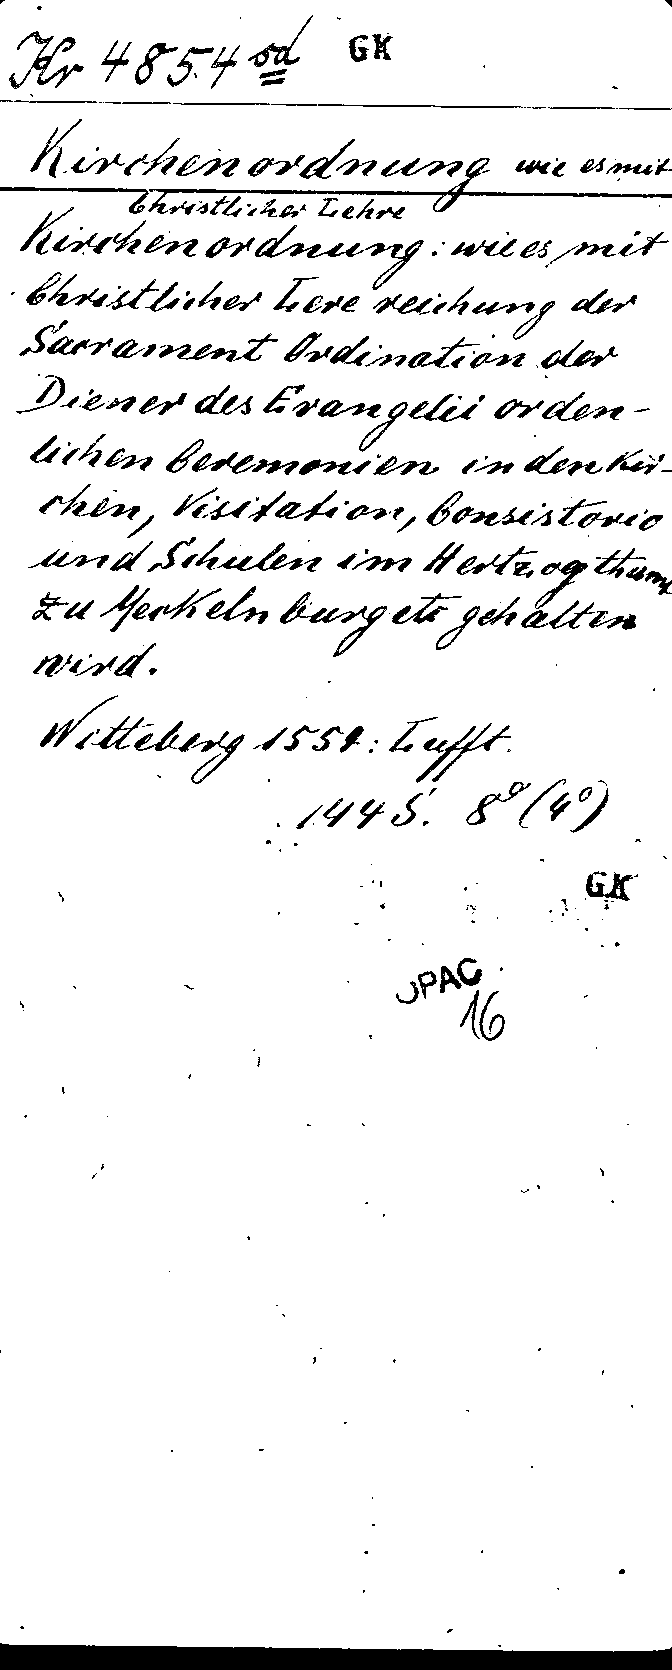 Kr 4854 od GK
Kirchenordnung wie es mit
Christlicher Lehre
Kirchenordnung: wie es mit
Christlicher Lere reichung der
Sacrament Ordination der
Diener des Evangelii orden-
lichen Ceremonien in den Kir-
chen, Visitation, Consistorio
und Schulen im Hertzogthumb
zu Meckelnburg etc gehalten
wird.
Witteberg 1554: Lufft.
144 S. 8° (4°)
GK
OPAC
16